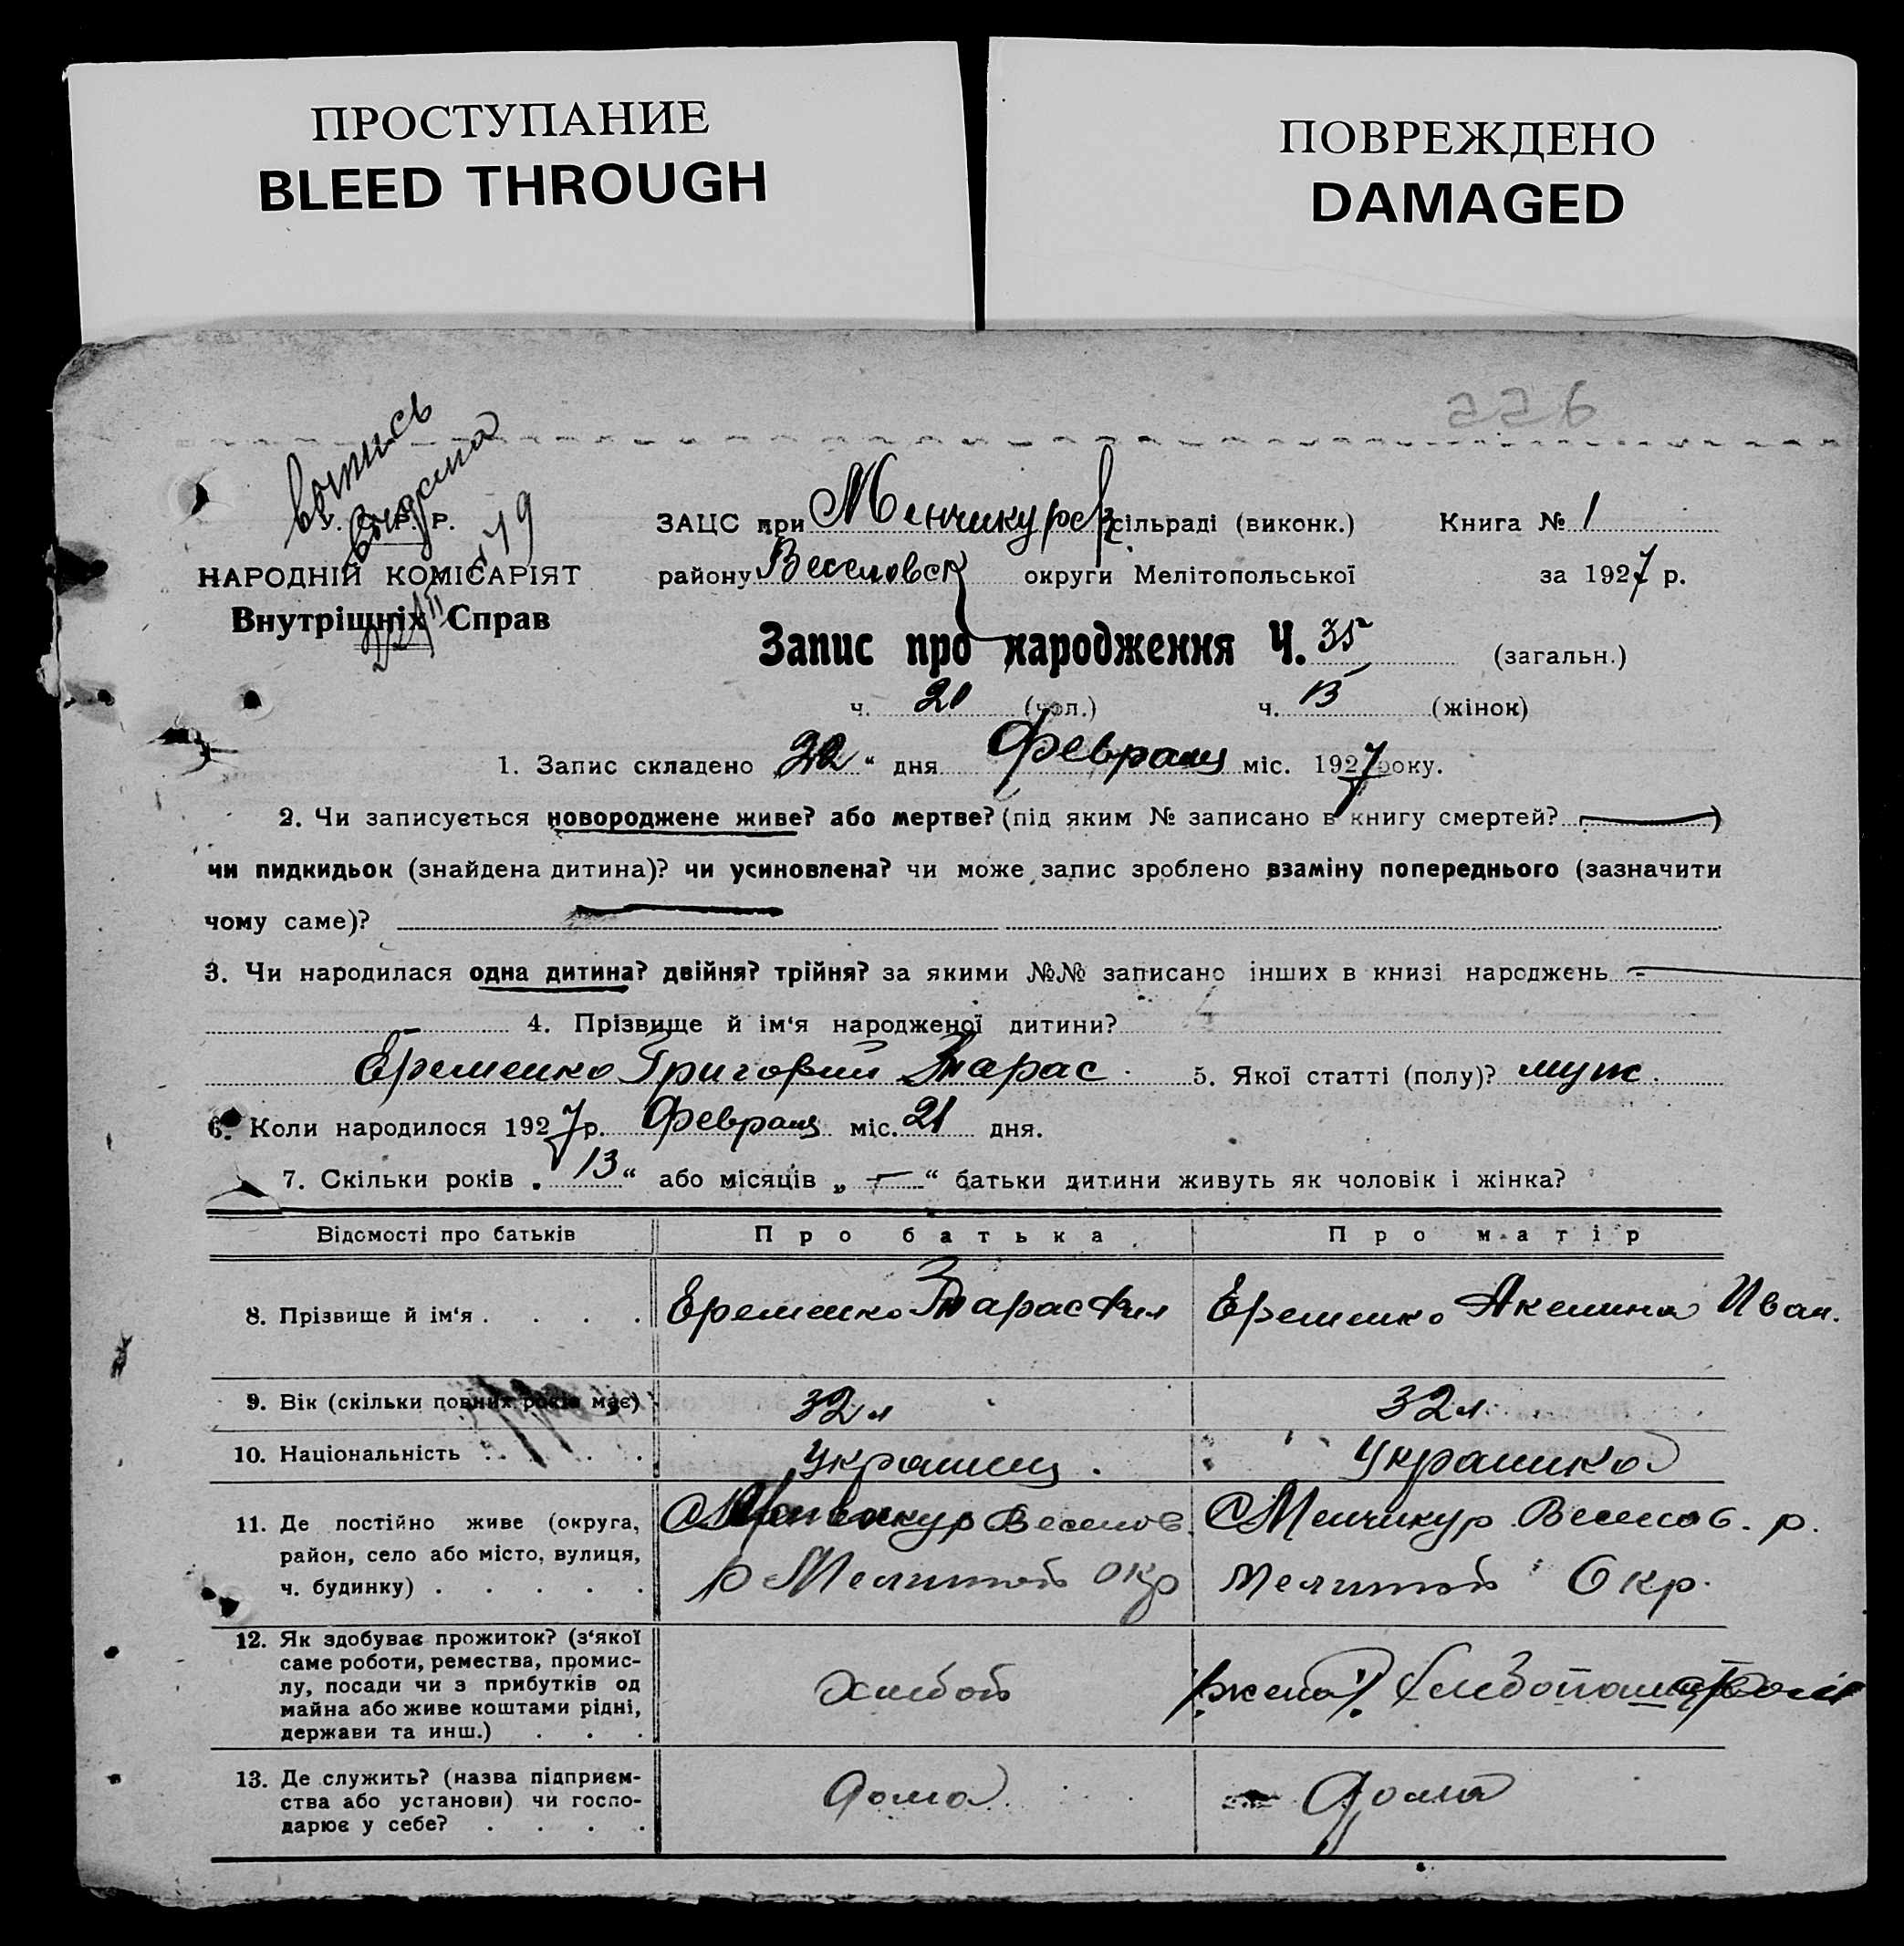 ПРОСТУПАНИЕ
BLEED THROUGH
ПОВРЕЖДЕНО
DAMAGED
226
У. С. Р. Р.
НАРОДНІЙ КОМІСАРІЯТ
Внутрішніх Справ
ЗАЦС при Менчикуров сільраді (виконк.) Книга № 1
району Веселовск округи Мелітопольської за 1927 р.
Запис про народження Ч. 35 (загальн.)
ч. 20 (чол.) ч. 15 (жінок)
1. Запис складено „22“ дня Февраля міс. 1927 року.
2. Чи записується новороджене живе? або мертве? (під яким № записано в книгу смертей? )
чи пидкидьок (знайдена дитина)? чи усиновлена? чи може запис зроблено взаміну попереднього (зазначити
чому саме)?
3. Чи народилася одна дитина? двійня? трійня? за якими №№ записано інших в книзі народжень –
4. Прізвище й ім‘я народженої дитини?
Еременко Григорий Тарас. 5. Якої статті (полу)? муж.
6. Коли народилося 1927 р. Февраля міс. 21 дня.
7. Скільки років „13“ або місяців „–“ батьки дитини живуть як чоловік і жінка?
Відомості про батьків Про батька Про матір
8. Прізвище й ім‘я . . . . Еременко Тарас Фил Еременко Акелина Иван.
9. Вік (скільки повних років має) 32 л 32 л.
10. Національність . . . . . украинец. Украинка
11. Де постійно живе (округа, район, село або місто, вулиця, ч. будинку) . . . . .
С Менчикур Веселов.
р Мелитоп окр
С Менчикур Веселов. р.
Мелитоп Окр.
12. Як здобуває прожиток? (з‘якої
саме роботи, ремества, промис-
лу, посади чи з прибутків од
майна або живе коштами рідні,
держави та инш.) . . .
Хлебоп
жена
13. Де служить? (назва підприєм-
ства або установи) чи госпо-
дарює у себе? . . . .
дома
дома